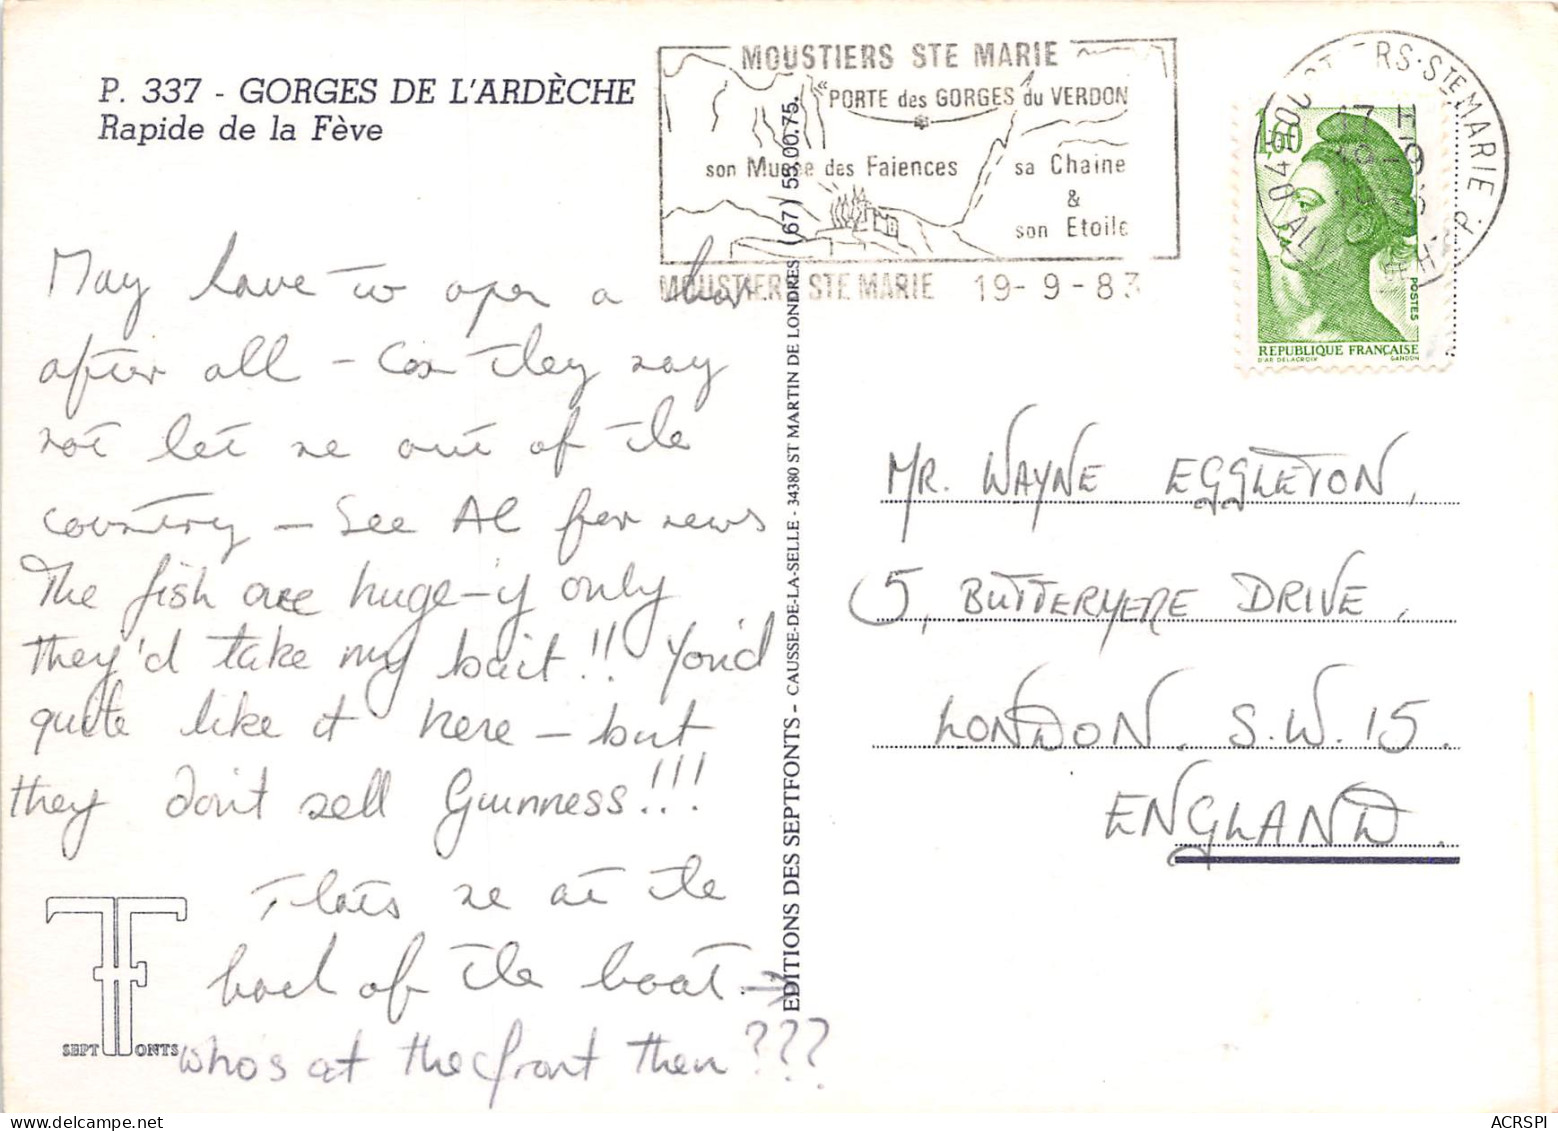 P. 337 - GORGES DE L'ARDÈCHE
Rapide de la Fève
MOUSTIERS STE MARIE
"PORTE des GORGES du VERDON
son Musée des Faiences
sa Chaine
&
son Etoile
MOUSTIERS STE MARIE 19-9-83
1,60
POSTES
REPUBLIQUE FRANÇAISE
D'AP. DELACROIX GANDON
May have to open a bar
after all - Cos they may
not let me out of the
country - See Al for news
The fish are huge - if only
they'd take my bait!! You'd
quite like it here - but
they don't sell Guinness!!!
Thats me at the
back of the boat →
whos at the front then???
SEPT FONTS
EDITIONS DES SEPTFONTS - CAUSSE-DE-LA-SELLE - 34380 ST MARTIN DE LONDRES (67) 55.00.75.
MR. WAYNE EGGLETON,
5, BUTTERMERE DRIVE,
LONDON. S.W.15.
ENGLAND.
ACRSPI